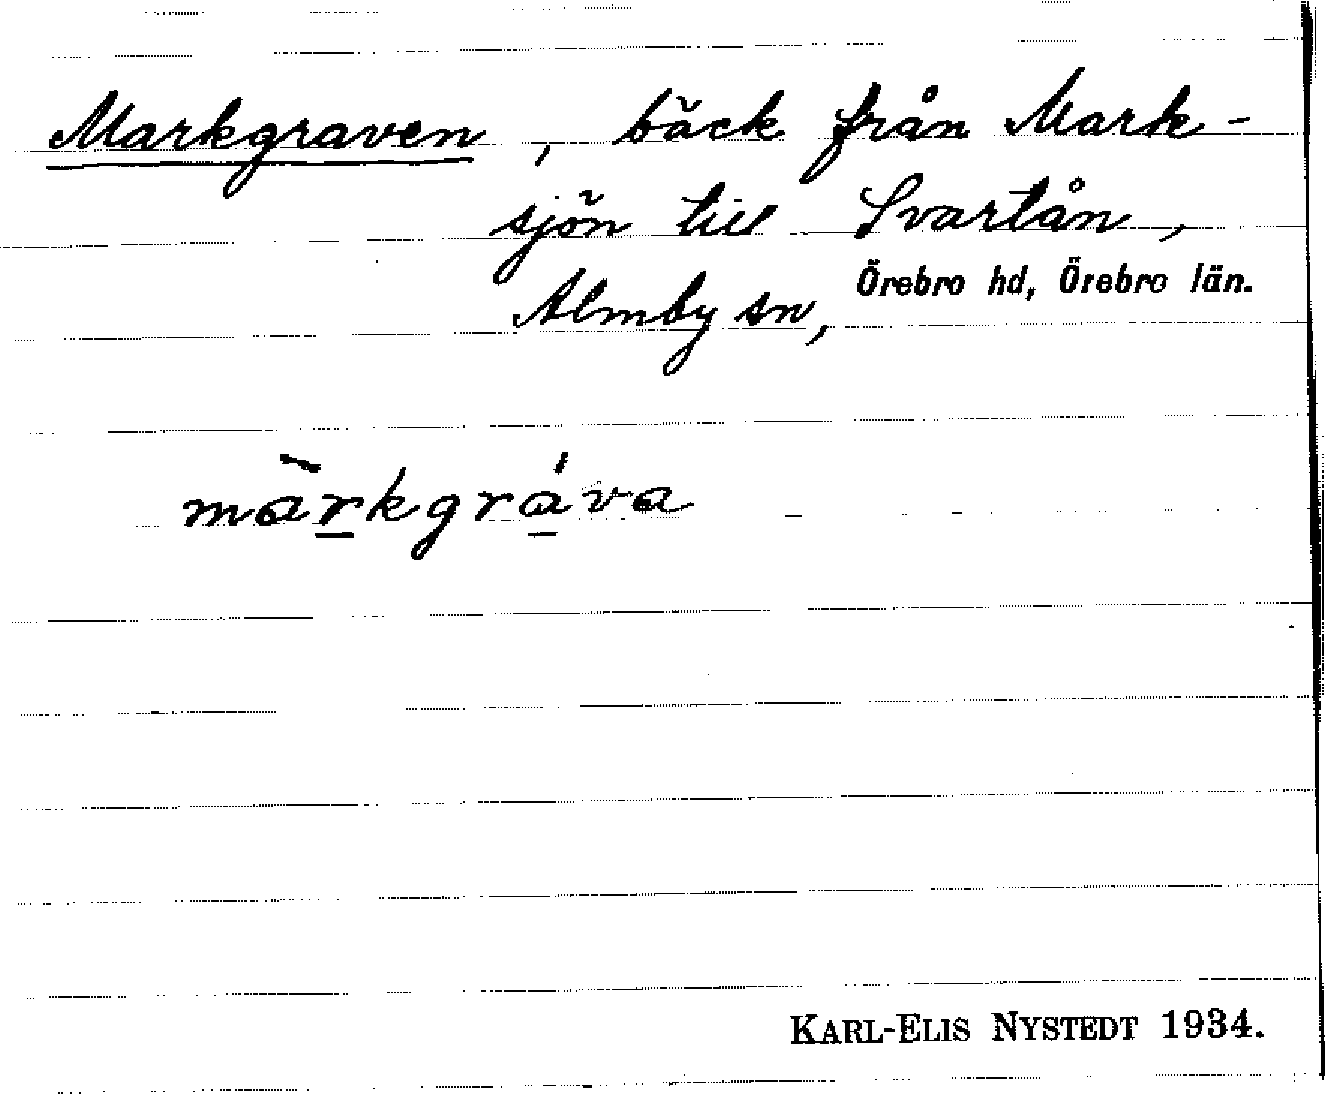 Markgraven, bäck från Mark-
sjön till Svartån,
Almby sn, Örebro hd, Örebro län.
màr̲kgrá̲va
KARL-ELIS NYSTEDT 1934.